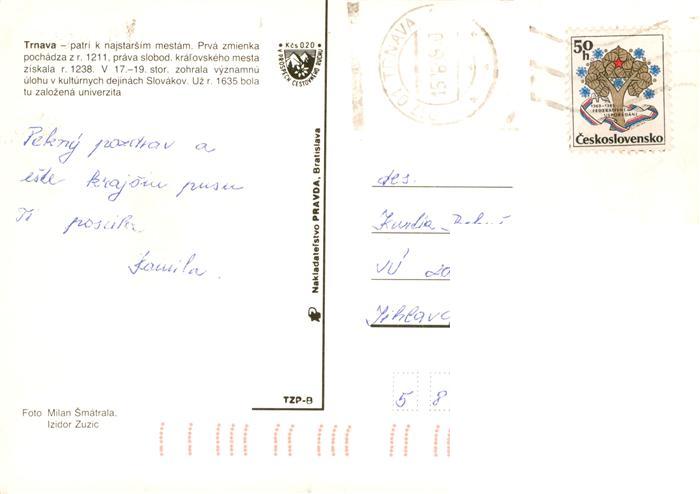 Trnava – patrí k najstarším mestám. Prvá zmienka
pochádza z r. 1211, práva slobod. kráľovského mesta
získala r. 1238. V 17.–19. stor. zohrala významnú
úlohu v kultúrnych dejinách Slovákov. Už r. 1635 bola
tu založená univerzita
Kčs 0,20
V PROSPECH CESTOVNÉHO RUCHU
Pekný pozdrav a
ešte krajšiu pusu
Ti posiela
Kamila.
Foto Milan Šmátrala.
Izidor Zuzic
Nakladateľstvo PRAVDA, Bratislava
TZP-B
TRNAVA
50 h
1968–1988
FEDERATÍVNÍ
USPOŘÁDÁNÍ
Československo
des.
VÚ
Jihlava
5 8